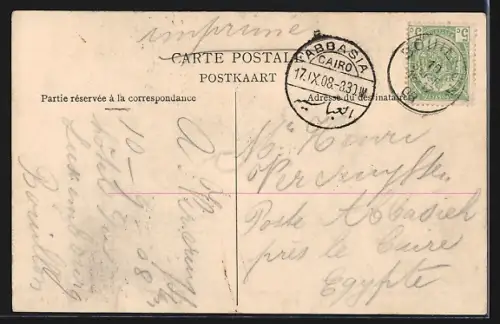 imprimé
CARTE POSTALE
POSTKAART
Partie réservée à la correspondance
Adresse du destinataire
ABBASIA
CAIRO
17.IX.08
5 C
A.
10-9-08
Hôtel du
Luxembourg
Bouillon
Mr Henri
Poste Abbasieh
près le Caire
Egypte